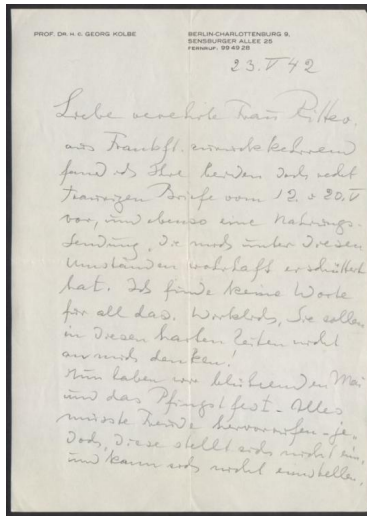 PROF. DR. H. C. GEORG KOLBE
BERLIN-CHARLOTTENBURG 9,
SENSBURGER ALLEE 25
FERNRUF: 99 49 28
23. V 42
Liebe verehrte Frau
aus Frankft. zurückkehrend
fand ich Ihre beiden doch recht
traurigen Briefe vom 12. u 20. V
vor, und ebenso eine Nahrungs-
sendung, die mich unter diesen
Umständen wahrhaft erschüttert
hat. Ich finde keine Worte
für all das. Wirklich, Sie sollen
in diesen harten Zeiten nicht
an mich denken!
Nun haben wir blühenden Mai
und das Pfingstfest - Alles
müsste Freude hervorrufen - je-
doch, diese stellt sich nicht ein,
und kann sich nicht einstellen,